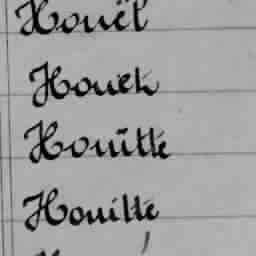 Houël
Houek
Houitte
Houitte